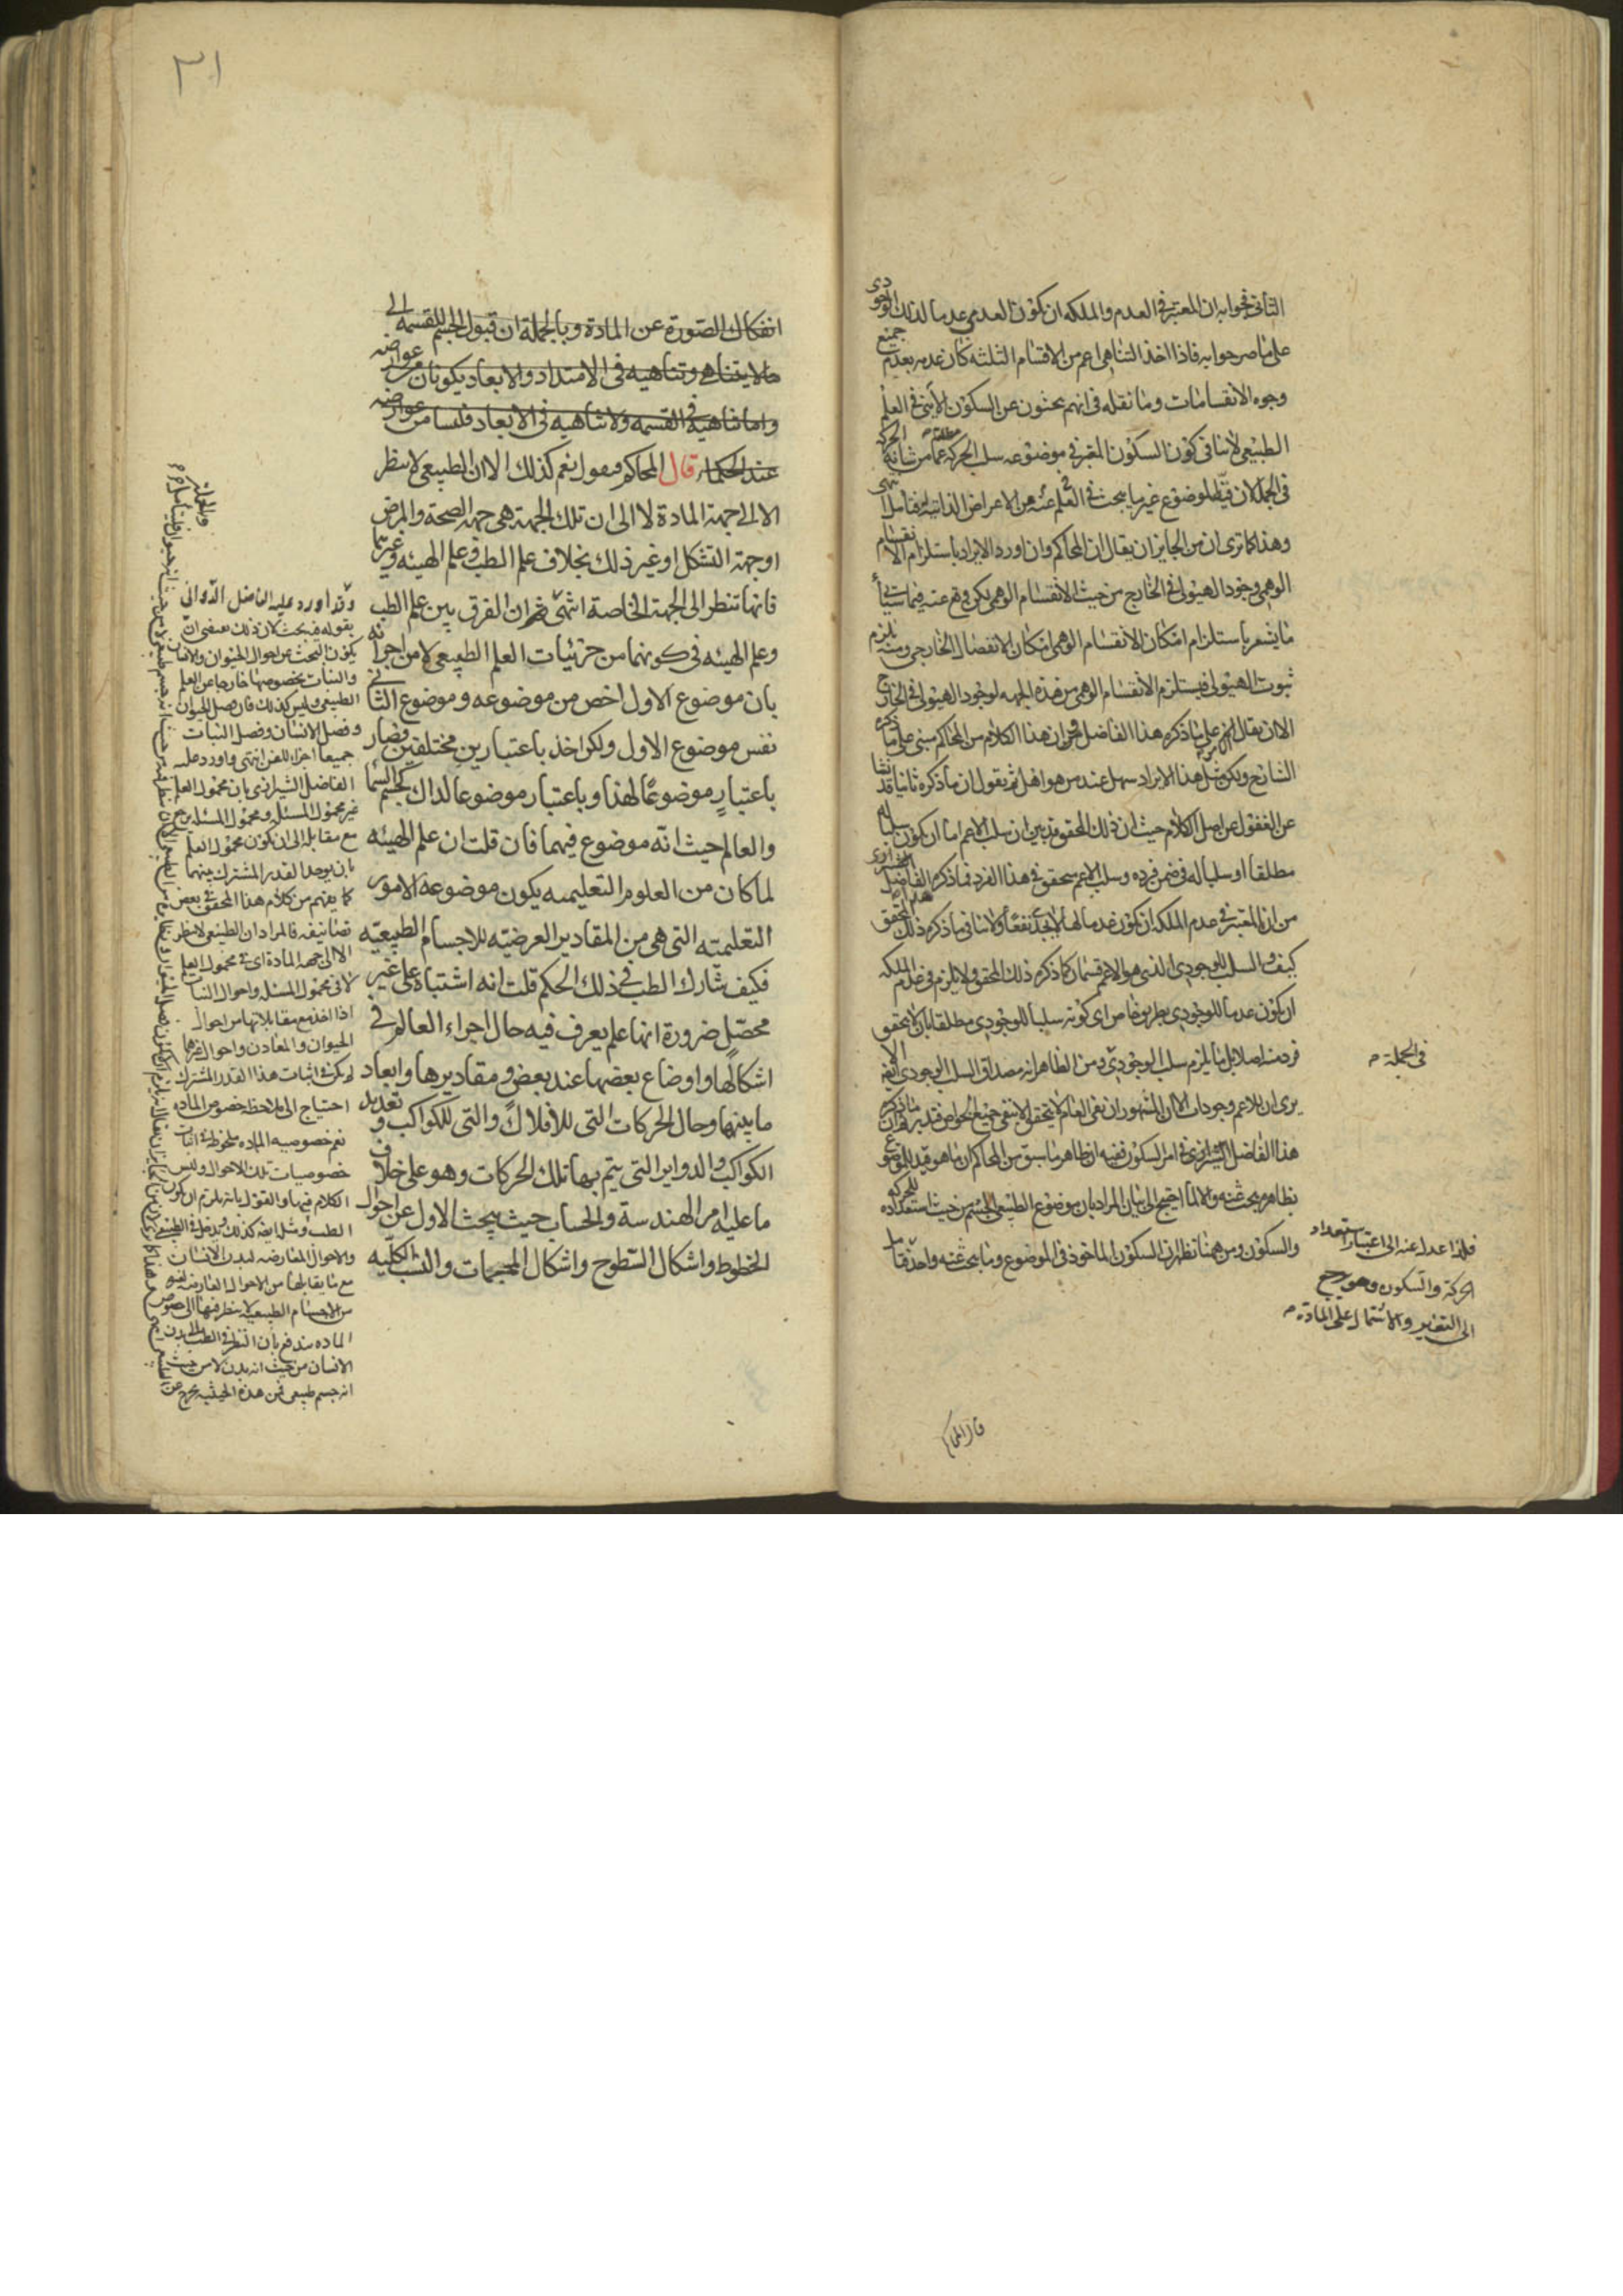 الثانى فجوابه ان المعتبر فى العدم والملكه ان يكون العدمى عدما لذلك الوجودى
على ما صرحوا به فاذا اخذ التناهى اعم من الاقسام الثلثه كان عدمه بعدم جميع
وجوه الانقسامات وما نقله فى انهم يبحثون عن السكون الأينى فى العلم
الطبيعى لا ينافى كون السكون المعتبر فى موضوعه سلب الحركة مطلقا عما من شانه الحركة
فى الجملة لان قيد الموضوع غير ما يبحث فى العلم عنه من الاعراض الذاتية فتأمل انتهى
وهذا كما ترى ان من الجايز ان يقال ان المحاكم وان اورد الايراد باستلزام الانقسام
الوهمى وجود الهيولى فى الخارج من حيث الانقسام الوهمى لكن وقع عنه فيما سيأتى
ما يشعر باستلزام امكان الانقسام الوهمى امكان الانفصال الخارجى ومنه يلزم
ثبوت الهيولى فيستلزم الانقسام الوهمى من هذه الجهه لوجود الهيولى فى الخارج
الا ان يقال على ما ذكره هذا الفاضل ان هذا الكلام من المحاكم مبنى على ما ذكره
الشارح ولكن مثل هذا الايراد سهل عند من هو اهل ثم نقول ان ما ذكره ثانيا قد نشأ
عن الغفول عن اصل الكلام حيث ان ذلك المحقق قد بين ان سلب الاعم اما ان يكون سلبا له
مطلقا او سلبا له فى ضمن فرده وسلب الاعم يتحقق فى هذا الفرد فما ذكره الفاضل الشيرازى
من ان المعتبر فى عدم الملكه ان يكون عدما لها لا يجد نفعا ولا ينافى ما ذكره ذلك المحقق
كيف والسلب للوجودى الذى هو الاعم قسمان كما ذكره ذلك المحقق ولا يلزم فى عدم الملكه
ان يكون عدما للوجودى بطريق خاص اى كونه سلبا للوجودى مطلقا بان لا يتحقق
فرد منه اصلا بل ما يلزم سلب الوجودى ومن الظاهر انه مصداق السلب الوجودى الا انه
يرى ان للاعم وجودات الا ان المشهور ان نفى العام لا يتحقق الا بنفى جميع الخواص فتدبر ما ذكره
هذا الفاضل الشيرازى فى امر السكون ففيه ان ظاهر ما سبق من المحاكم ان ما هو قيد للموضوع
بظاهره يبحث عنه والا لما احتيج الى بيان المراد بان موضوع الطبيعى الجسم من حيث استعداده للحركه
والسكون ومن ههنا تظهر ان السكون الماخوذ فى الموضوع وما يبحث عنه واحد فتأمل
فى الجملة م
فلهذا عدل عنه الى اعتبار استعداد
الحركة والسكون وهو يرجع
الى التغير والاشتمال على المادة م
قال المحاكم
٣١
انفكاك الصورة عن المادة وبالجملة ان قبول الجسم للقسمه الى
مالايتناهى وتناهيه فى الامتداد والابعاد يكونان من عوارضه
واما تناهيه فى القسمه ولاتناهيه فى الابعاد فليسا من عوارضه
عند الحكماء قال المحاكم ونقول نعم كذلك الا ان الطبيعى لا ينظر
الا الى جهة المادة لا الى ان تلك الجهة هى جهة الصحة والمرض
او جهة التشكل او غير ذلك بخلاف علم الطب وعلم الهيئه وغيرهما
فانها تنظر الى الجهة الخاصة انتهى ان الفرق بين علم الطب
وعلم الهيئه فى كونهما من جزئيات العلم الطبيعى لا من اجزائه
بان موضوع الاول اخص من موضوعه وموضوع الثانى
نفس موضوع الاول ولكن اخذ باعتبارين مختلفين فصار
باعتبار موضوعًا لهذا وباعتبار موضوعا لذاك كجسم السما
والعالم حيث انه موضوع فيهما فان قلت ان علم الهيئه
لما كان من العلوم التعليميه يكون موضوعه الامور
التعليميّه التى هى من المقادير العرضيّه للاجسام الطبيعيّه
فكيف شارك الطب فى ذلك الحكم قلت انه اشتباه على غير
محصّل ضرورة انها علم يعرف فيه حال اجزاء العالم فى
اشكالها واوضاع بعضها عند بعض ومقاديرها وابعاد
ما بينها وحال الحركات التى للأفلاك والتى للكواكب وتعديد
الكواكب والدواير التى يتم بها تلك الحركات وهو على خلاف
ما عليه امر الهندسة والحساب حيث يبحث الاول عن احوال
الخطوط واشكال السّطوح واشكال المجسمات والنسب الكلّيه
وقد اورد عليه الفاضل الدوانى
بقوله فيه بحث لان ذلك يقتضى ان
يكون البحث عن احوال الحيوان والانسان
والنبات بخصوصها خارجا عن العلم
الطبيعى وليس كذلك فان فصل الحيوان
وفصل الانسان وفصل النبات
جميعا اجزاء للفن انتهى واورد عليه
الفاضل الشيرازى بان محمول العلم
غير محمول المسئله ومحمول المسئله يرجع
مع مقابله الى ان يكون محمول العلم
بان يوجد القدر المشترك بينهما
كما يفهم من كلام هذا المحقق فى بعض
تصانيفه فالمراد ان الطبيعى لا ينظر
الا الى جهه المادة اى فى محمول العلم
لا فى محمول المسئله واحوال النبات
اذا اخذ مع مقابلاتها من احوال
الحيوان والمعادن واحوال غيرها
لم يكن فى اثبات هذا القدر المشترك
احتياج الى ملاحظه خصوص الماده
نعم خصوصيه الماده ملحوظه فى اثبات
خصوصيات تلك الاحوال وليس
الكلام فيها والقول بانه يلزم ان يكون
الطب ومثله ايضه كذلك
والاحوال العارضه لبدن الانسان
مع ما يقابلها من الاحوال العارضه لغيره
من الاجسام الطبيعيه لا ينظر فيها الى خصوص
الماده مندفع بان النظر فى الطب الى بدن
الانسان من حيث انه بدن لا من حيث
انه جسم طبيعى فمن هذه الحيثيه يخرج عن